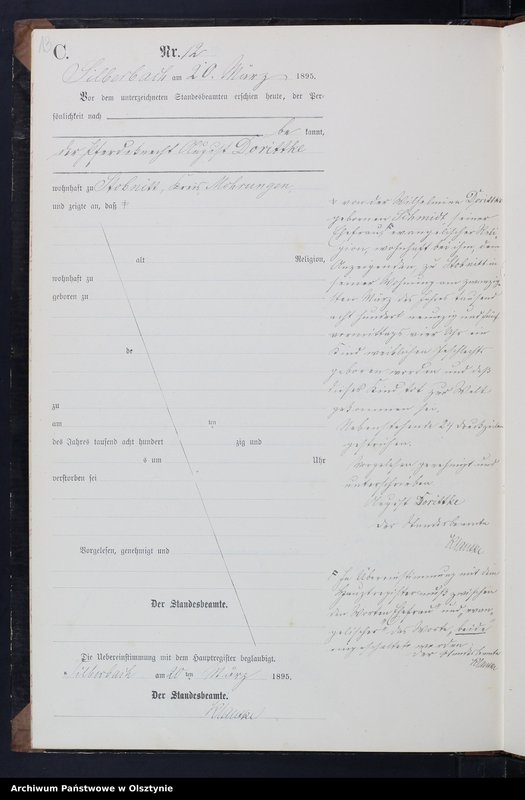 C.
Nr. 12
Silberbach am 20. März 1895.
Vor dem unterzeichneten Standesbeamten erschien heute, der Per-
sönlichkeit nach
be kannt,
der Pferdeknecht August Dorittke
wohnhaft zu Stobnitt, Kreis Mohrungen
und zeigte an, daß
alt Religion,
wohnhaft zu
geboren zu
de
zu
am ten
des Jahres tausend acht hundert zig und
s um Uhr
verstorben sei
Vorgelesen, genehmigt und
Der Standesbeamte.
Die Uebereinstimmung mit dem Hauptregister beglaubigt.
Silberbach am 20 ten März 1895.
Der Standesbeamte.
von der Wilhelmine Dorittke
geborenen Schmidt, seiner
Ehefrau evangelischer Reli-
gion, wohnhaft bei ihm, dem
Anzeigenden zu Stobnitt in
seiner Wohnung am zwanzig-
sten März des Jahres tausend
acht hundert neunzig und fünf
vormittags vier Uhr ein
Kind weiblichen Geschlechts
geboren worden und daß
dieses Kind tot zur Welt
gekommen sei.
Nebenstehende 24 Druckzeilen
gestrichen.
Vorgelesen genehmigt und
unterschrieben
August Dorittke
Der Standesbeamte
In Übereinstimmung mit dem
Hauptregister muß zwischen
den Worten Ehefrau und "evan-
gelischer" das Wort "beide"
eingeschaltet werden
Der Standesbeamte
Archiwum Państwowe w Olsztynie